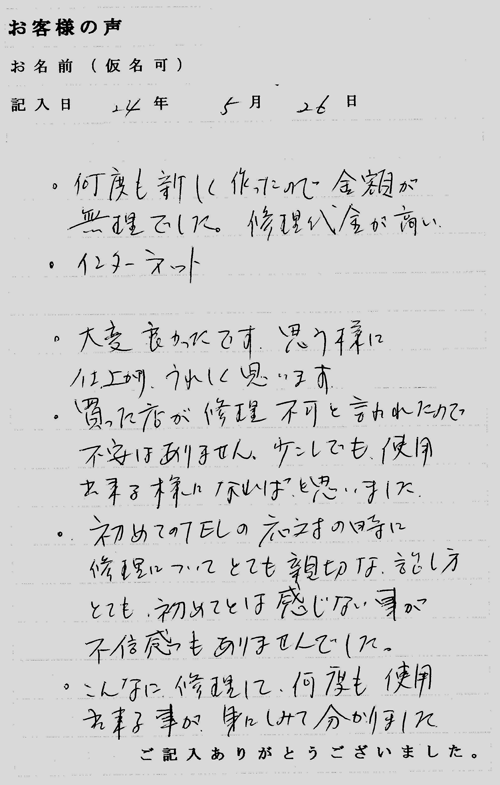 お客様の声
お名前（仮名可）
記入日 24年 5月 26日
・何度も新しく作ったので金額が
無理でした。修理代金が高い
・インターネット
・大変良かったです。思う様に
仕上がり、うれしく思います
・買った店が修理不可と言われたので
不安はありません。少しでも、使用
出来る様になればと思いました
・初めてのTELの応対の時に
修理についてとても親切な、話し方
とても、初めてとは感じない事が
不信感もありませんでした。
・こんなに、修理して、何度も使用
出来る事が、身にしみて分かりました
ご記入ありがとうございました。